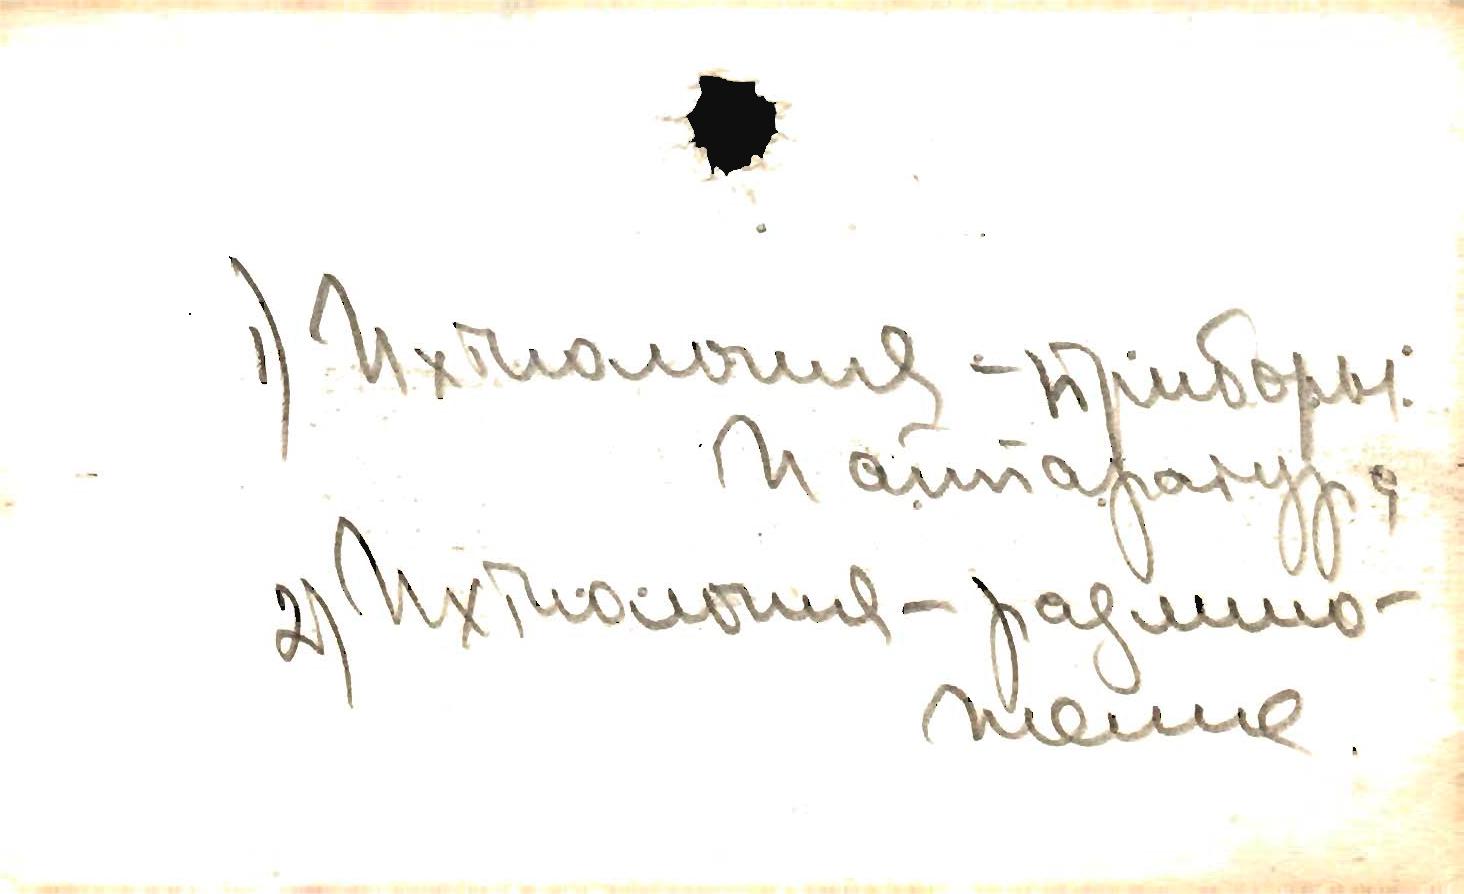 1) Ихтиология - приборы
и аппаратура
2) Ихтиология - размно-
жение.